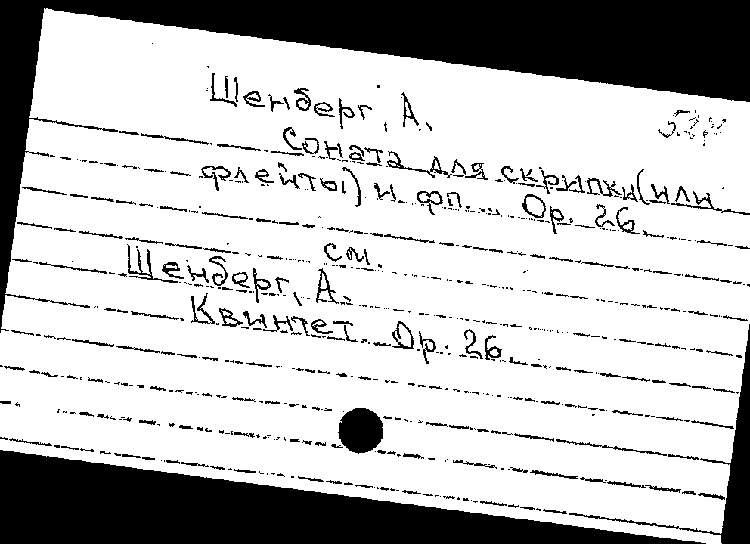 Шенберг, А.
Соната для скрипки (или
флейты) и фп... Ор. 26.
см.
Шенберг, А.
Квинтет. Ор. 26.